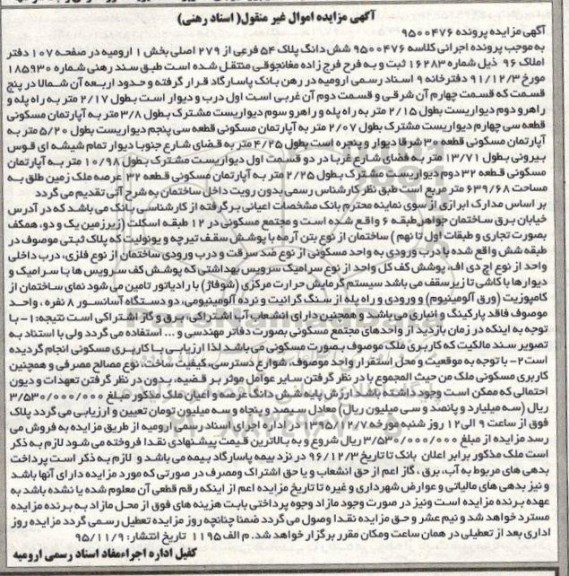 آگهی مزایده اموال غیر منقول( اسناد رهنی)
آگهی مزایده پرونده ۹۵۰۰۴۷۶
به موجب پرونده اجرائی کلاسه ۹۵۰۰۴۷۶ شش دانگ پلاک ۵۴ فرعی از ۲۷۹ اصلی بخش ۱ ارومیه در صفحه ۱۰۷ دفتر
املاک ۹۶ ذیل شماره ۱۶۲۸۳ ثبت و به فرح فرج زاده مغانجوقی منتقل شده است طبق سند رهنی شماره ۱۸۵۹۳۰
مورخ ۹۱/۱۲/۳ دفترخانه ۹ اسناد رسمی ارومیه در رهن بانک پاسارگاد قرار گرفته و حدود اربعه آن شمالا در پنج
قسمت که قسمت چهارم آن شرقی و قسمت دوم آن غربی است اول درب و دیوار است بطول ۲/۱۷ متر به راه پله و
راهرو دوم دیواریست بطول ۲/۱۵ متر به راه پله و راهرو سوم دیواریست مشترک بطول ۳/۸ متر به آپارتمان مسکونی
قطعه سی چهارم دیواریست مشترک بطول ۲/۰۷ متر به آپارتمان مسکونی قطعه سی پنجم دیواریست بطول ۵/۲۰ متر به
آپارتمان مسکونی قطعه ۳۰ شرقا دیوار و پنجره است بطول ۴/۲۵ متر به فضای شارع جنوبا دیوار تمام شیشه ای قوس
بیرونی بطول ۱۳/۷۱ متر به فضای شارع غربا در دو قسمت اول دیواریست مشترک بطول ۱۰/۹۸ متر به آپارتمان
مسکونی قطعه ۳۲ دوم دیواریست مشترک بطول ۲/۲۵ متر به آپارتمان مسکونی قطعه ۳۲ عرصه ملک زمین طلق به
مساحت ۶۳۹/۶۸ متر مربع است طبق نظر کارشناس رسمی بدون رویت داخل ساختمان به شرح آتی تقدیم می گردد
بر اساس مدارک ابرازی از سوی نماینده محترم بانک مشخصات اعیانی برگرفته از کارشناسی بانک می باشد که در آدرس
خیابان برق ساختمان جواهر طبقه ۶ واقع شده است و مجتمع مسکونی در ۱۲ طبقه اسکلت (زیرزمین یک و دو، همکف
بصورت تجاری و طبقات اول تا نهم ) ساختمان از نوع بتن آرمه با پوشش سقف تیرچه و یونولیت که پلاک ثبتی موصوف در
طبقه شش واقع شده با درب ورودی به واحد مسکونی از نوع ضد سرقت و درب ورودی ساختمان از نوع فلزی، درب داخلی
واحد از نوع اچ دی اف، پوشش کف کل واحد از نوع سرامیک سرویس بهداشتی که پوشش کف سرویس ها با سرامیک و
دیوارها با کاشی تا زیر سقف می باشد سیستم گرمایش حرارت مرکزی (شوفاژ) با رادیاتور تامین می شود نمای ساختمان از
کامپوزیت (ورق آلومینیوم) و ورودی و راه پله از سنگ گرانیت و نرده آلومینیومی، دو دستگاه آسانسور ۸ نفره ، واحد
موصوف فاقد پارکینگ و انباری می باشد و همچنین دارای انشعاب آب اشتراکی، برق و گاز اشتراکی است نتیجه: ۱- با
توجه به اینکه در زمان بازدید از واحدهای مجتمع مسکونی بصورت دفاتر مهندسی و ... استفاده می گردد ولی با استناد به
تصویر سند مالکیت که کاربری ملک موصوف بصورت مسکونی می باشد لذا ارزیابی با کاربری مسکونی انجام گردیده
است ۲- با توجه به موقعیت و محل استقرار واحد موصوف، شوارع دسترسی، کیفیت ساخت، نوع مصالح مصرفی و همچنین
کاربری مسکونی ملک من حیث المجموع با در نظر گرفتن سایر عوامل موثر بر قضیه، بدون در نظر گرفتن تعهدات و دیون
احتمالی که ممکن است وجود داشته باشد ارزش پایه شش دانگ عرصه و اعیان ملک مذکور مبلغ ۳/۵۳۰/۰۰۰/۰۰۰
ریال (سه میلیارد و پانصد و سی میلیون ریال) معادل سیصد و پنجاه و سه میلیون تومان تعیین و ارزیابی می گردد پلاک
فوق از ساعت ۹ الی ۱۲ روز شنبه مورخه در اجرای اسناد رسمی ارومیه از طریق مزایده به فروش می
رسد مزایده از مبلغ ۳/۵۳۰/۰۰۰/۰۰۰ ریال شروع و به بالاترین قیمت پیشنهادی نقدا فروخته می شود لازم به ذکر
است ملک مذکور برابر اعلان بانک تا تاریخ ۹۶/۱۲/۳ در نزد بیمه پاسارگاد بیمه می باشد و لازم به ذکر است پرداخت
بدهی های مربوط به آب، برق ، گاز اعم از حق انشعاب و یا حق اشتراک ومصرف در صورتی که مورد مزایده دارای آنها باشد
و نیز بدهی های مالیاتی و عوارض شهرداری و غیره تا تاریخ مزایده اعم از اینکه رقم قطعی آن معلوم شده یا نشده باشد به
عهده برنده مزایده است ونیز در صورت وجود مازاد وجوه پرداختی بابت هزینه های فوق از محل مازاد به برنده مزایده
مسترد خواهد شد و نیم عشر و حق مزایده نقدا وصول می گردد ضمنا چنانچه روز مزایده تعطیل رسمی گردد مزایده روز
اداری بعد از تعطیلی در همان ساعت ومکان مقرر برگزار خواهد شد. م الف ۱۱۹۵ تاریخ انتشار: ۹۵/۱۱/۹
کفیل اداره اجراء مفاد اسناد رسمی ارومیه